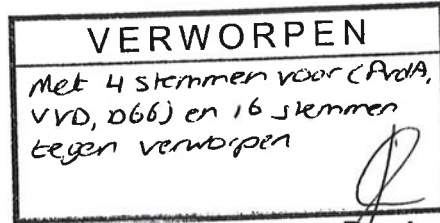 VERWORPEN
Met 4 stemmen voor (PvdA,
VVD, D66) en 16 stemmen
tegen verworpen